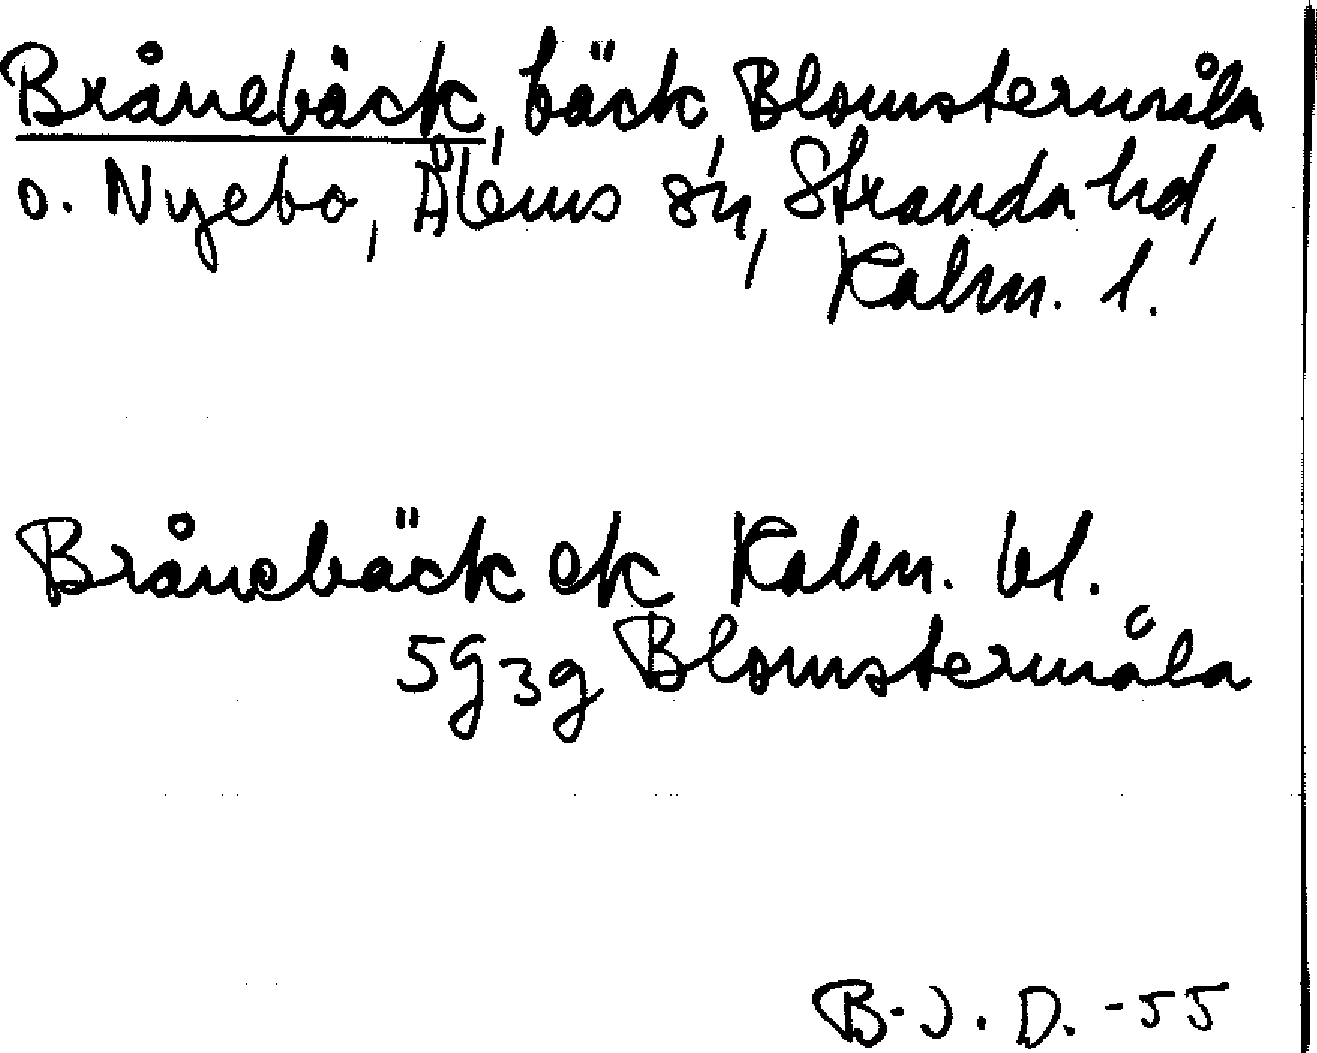 Brånebäck, bäck, Blomstermåla
o. Nyebo, Ålems sn, Stranda hd,
Kalm. l.
Brånebäck ek Kalm. bl.
5g3g Blomstermåla
B.J.D.-55